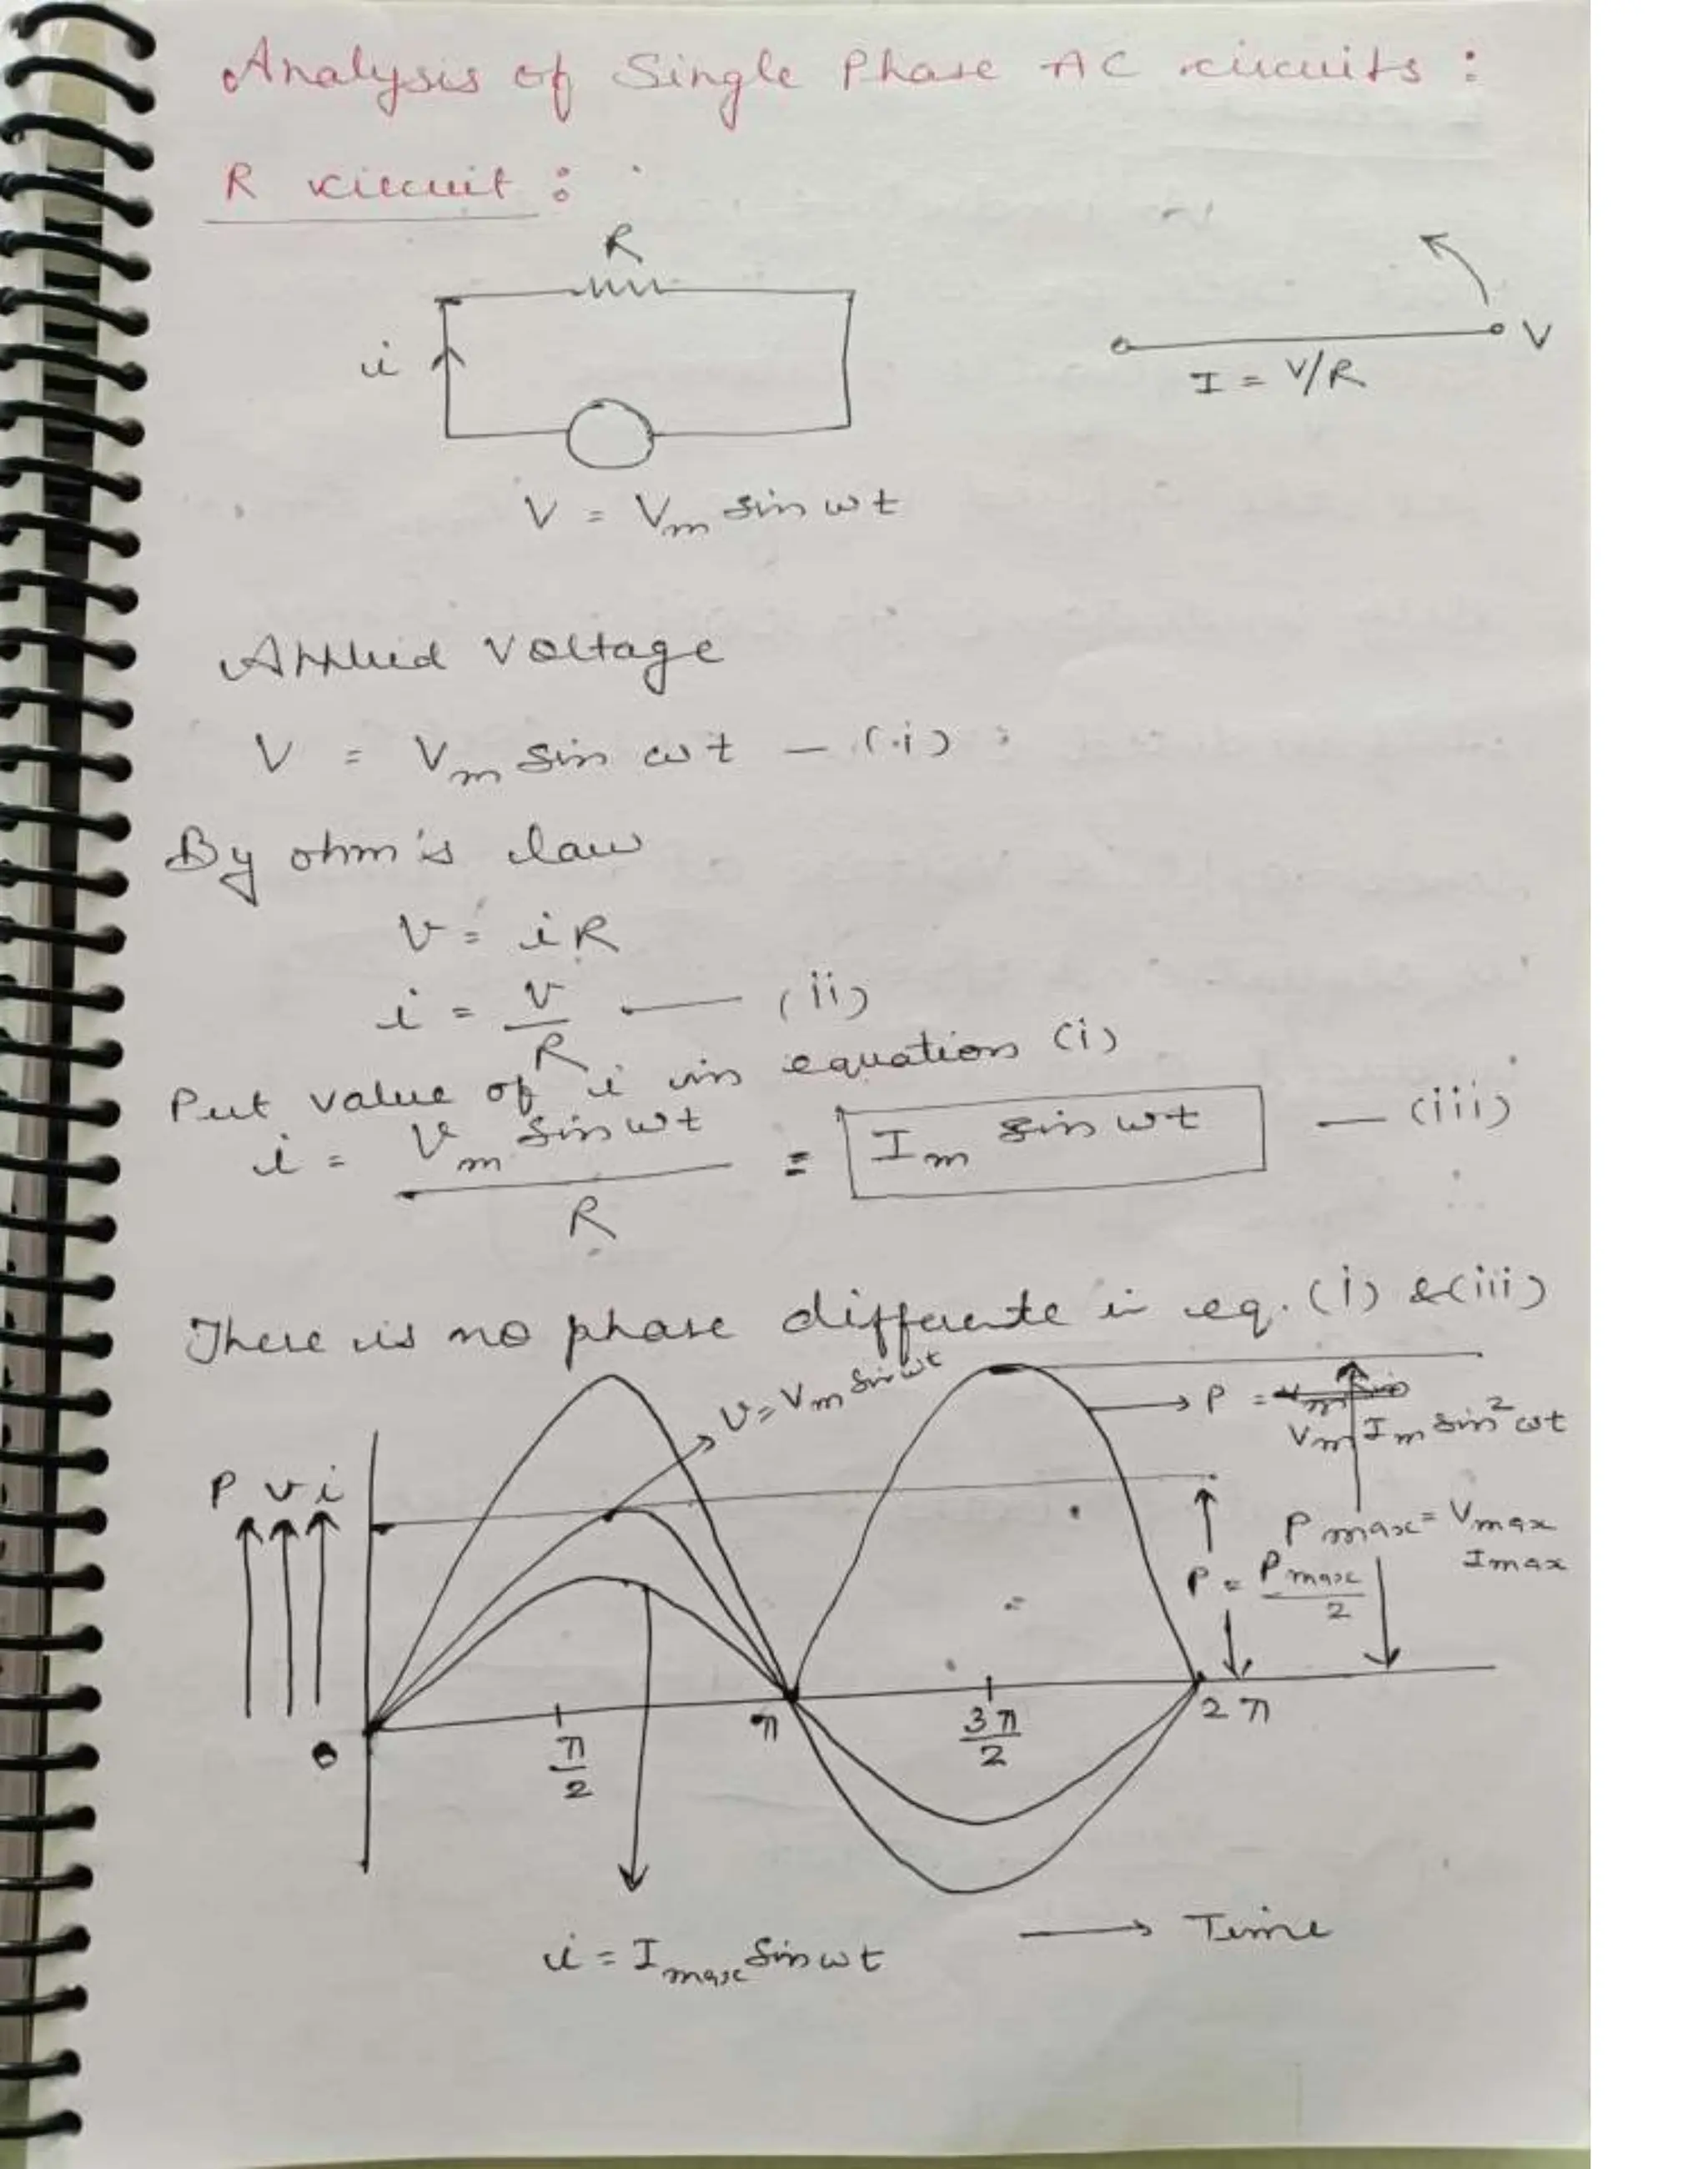 Analysis of Single Phase AC circuits :
R circuit :
R
i
V
I = V/R
V = Vm sin ωt
Applied Voltage
V = Vm sin ωt — (i)
By ohm's law
v = iR
i = v/R — (ii)
Put value of i in equation (i)
i = Vm sin ωt / R = Im sin ωt — (iii)
There is no phase differente in eq. (i) & (iii)
v = Vm sin ωt
P =
Vm Im sin² ωt
P v i
P max = Vmax
Imax
P = P max / 2
0
π/2
π
3π/2
2π
i = I max sin ωt
→ Time